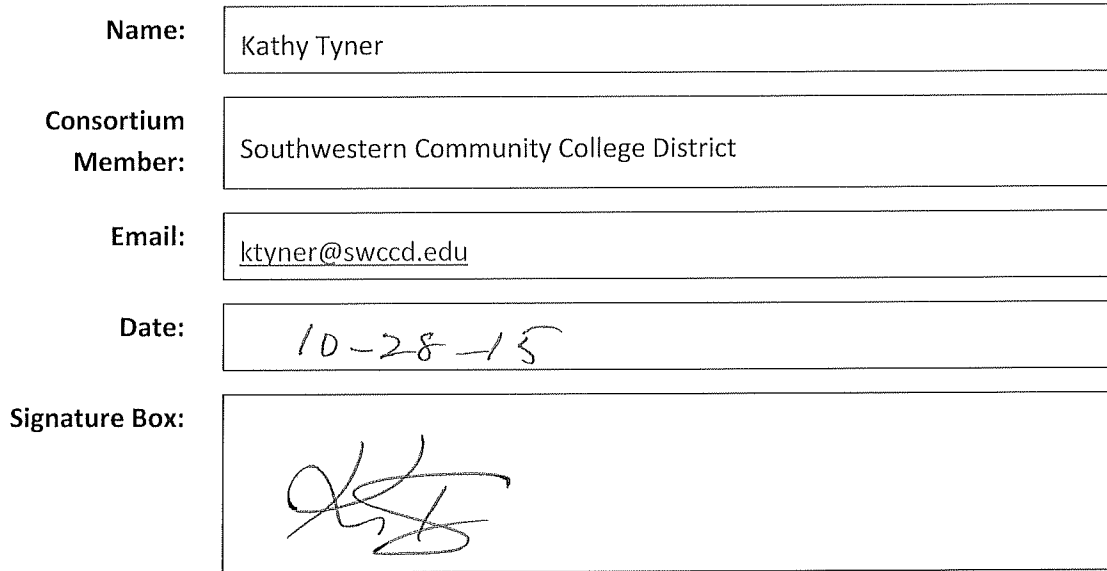 Name:
Kathy Tyner
Consortium
Member:
Southwestern Community College District
Email:
ktyner@swccd.edu
Date:
10-28-15
Signature Box: